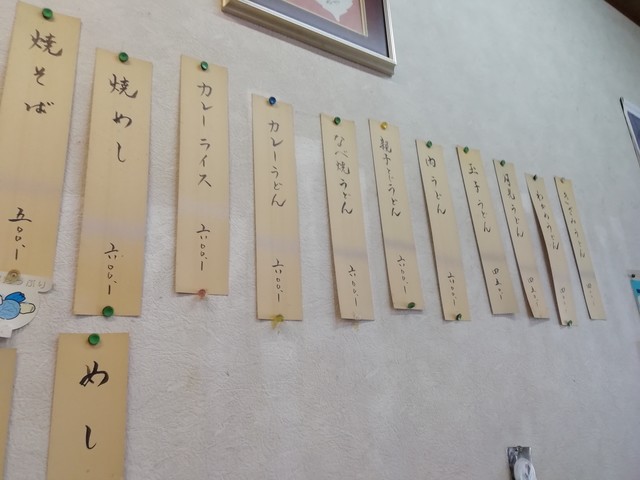 焼そば 五〇〇、ー
焼めし 六〇〇、ー
カレーライス 六〇〇、ー
カレーうどん 六〇〇、ー
なべ焼うどん 六〇〇、ー
親子うどん 六〇〇、ー
肉うどん 六〇〇、ー
玉子うどん
月見うどん
わかめうどん
めし